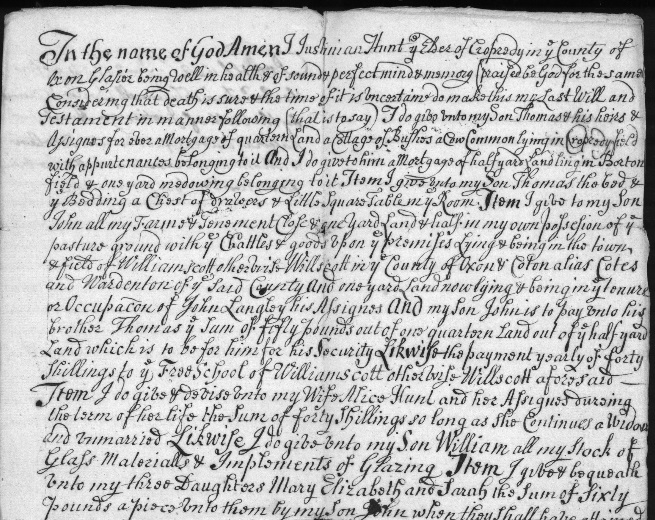 In the name of God Amen I Justinian Hunt ye Elder of Cropredy in ye County of
Oxon Glasier being well in health & of sound & perfect mind & memory praised be God for the same
Considering that death is sure & the time of it is uncertaine do make this my Last Will and
Testament in manner following (that is to say) I do give unto my Son Thomas & his heirs &
Assignes for ever a Mortgage of quartern Land a Cottage of Bushes a Cow Common lying in Cropredy field
with appurtenances belonging to it And I do give to him a Mortgage of half yard Land ling in Borton
field & one yard medowing belonging to it Item I give unto my Son Thomas the bed &
ye Bedding a Chest of drawers & Little Square Table in my Room Item I give to my Son
John all my Farme & Tenement Close & one yard Land & half in my own possession of ye
pasture ground with ye Chattles & goods upon ye premises Lying & being in the town
& field of Williamscott otherwise Willscott in ye County of Oxon & Coton alias Cotes
and Wardenton of ye Said County And one yard Land now lying & being in ye tenure
or Occupacon of John Langley his Assignes And my Son John is to pay unto his
brother Thomas ye Sum of fifty pounds out of one quartern Land out of ye half yard
Land which is to be for him for his Security Likwise the payment yearly of forty
Shillings to ye Free School of Williamscott otherwise Willscott aforesaid
Item I do give & devise unto my Wife Alice Hunt and her Assignes dureing
the term of her life the Sum of forty Shillings so long as She Continues a Widow
and unmarried Likwise I do give unto my Son William all my Stock of
Glass Materialls & Implements of Glazing Item I give & bequeath
unto my three Daughters Mary Elizabeth and Sarah the Sum of Sixty
Pounds a piece unto them by my Son John when they Shall have